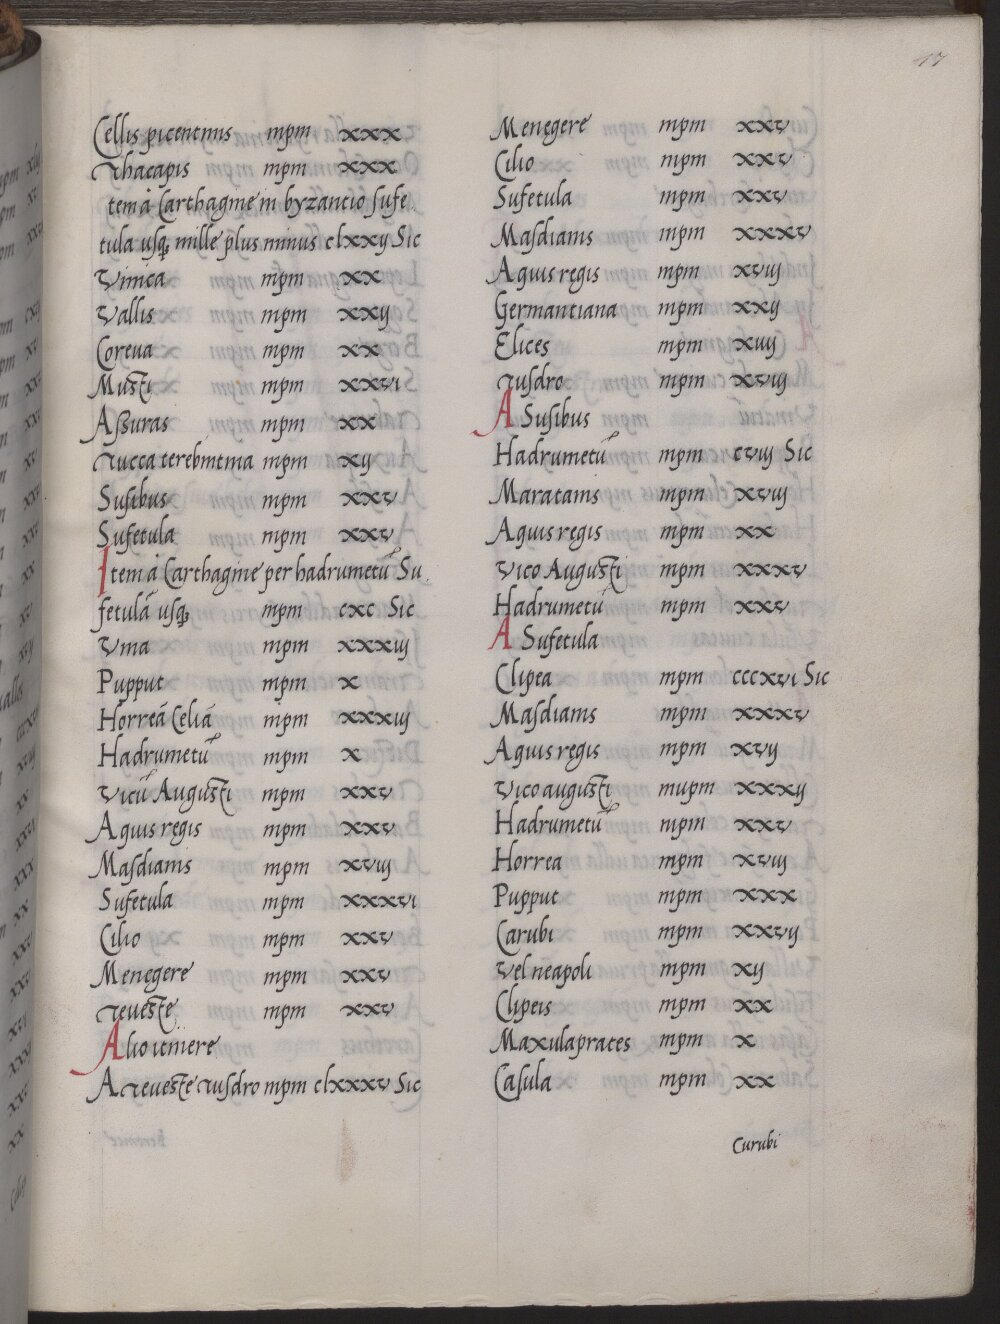 17
Cellis picentinis mpm xxx
Thacapis mpm xxx
tem á Carthagine in byzantio sufe
tula usq mille plus minus clxxij Sic
Vinica mpm xx
Vallis mpm xxij
Coreua mpm xx
Musti mpm xxvi
Assuras mpm xx
Tucca terebintina mpm xij
Sufibus mpm xxv
Sufetula mpm xxv
Item á Carthagine per hadrumetū Su
fetulā usq mpm cxc Sic
Vina mpm xxxiij
Pupput mpm x
Horreā Celiā mpm xxxiij
Hadrumetū mpm x
Vicū Augusti mpm xxv
Aquis regis mpm xxv
Masdianis mpm xviij
Sufetula mpm xxxvi
Cilio mpm xxv
Menegere mpm xxv
Teueste mpm xxv
Alio itinere
A Teueste Tusdro mpm clxxxv Sic
Menegere mpm xxv
Cilio mpm xxv
Sufetula mpm xxv
Masdianis mpm xxxv
Aquis regis mpm xviij
Germaniana mpm xxij
Elices mpm xuij
Tusdro mpm xviij
A Sufibus
Hadrumetū mpm cviij Sic
Maratanis mpm xviij
Aquis regis mpm xx
Vico Augusti mpm xxxv
Hadrumetū mpm xxv
A Sufetula
Clipea mpm cccxvi Sic
Masdianis mpm xxxv
Aquis regis mpm xvij
Vico augusti mupm xxxij
Hadrumetū mpm xxv
Horrea mpm xviij
Pupput mpm xxx
Carubi mpm xxvij
Vel neapoli mpm xij
Clipeis mpm xx
Maxulaprates mpm x
Casula mpm xx
Curubi